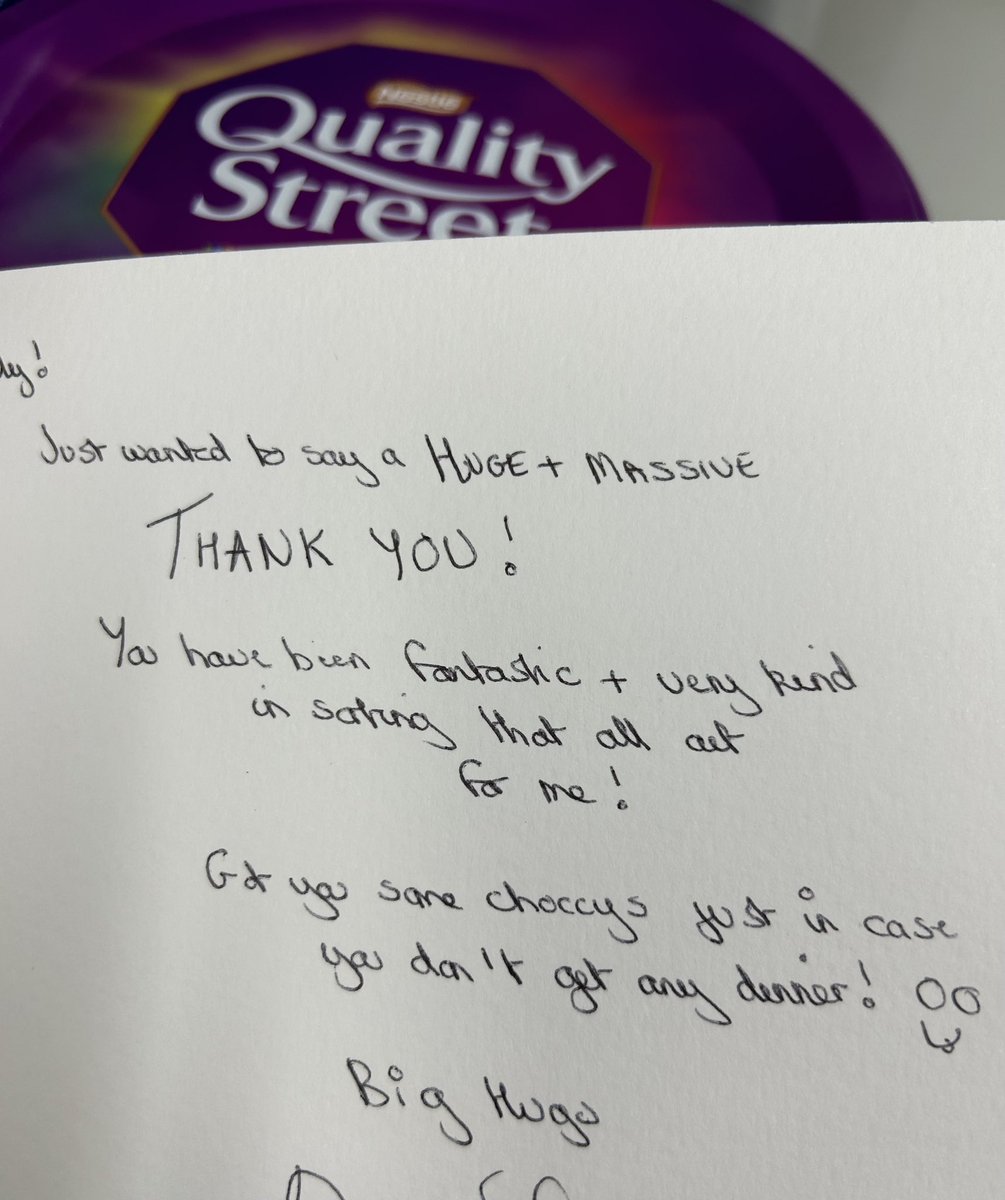 Nestlé
Quality
Street
Just wanted to say a HUGE + MASSIVE
THANK YOU!
You have been fantastic + very kind
in sorting that all out
for me!
Got you some choccys just in case
you don't get any dinner!
Big Hugs